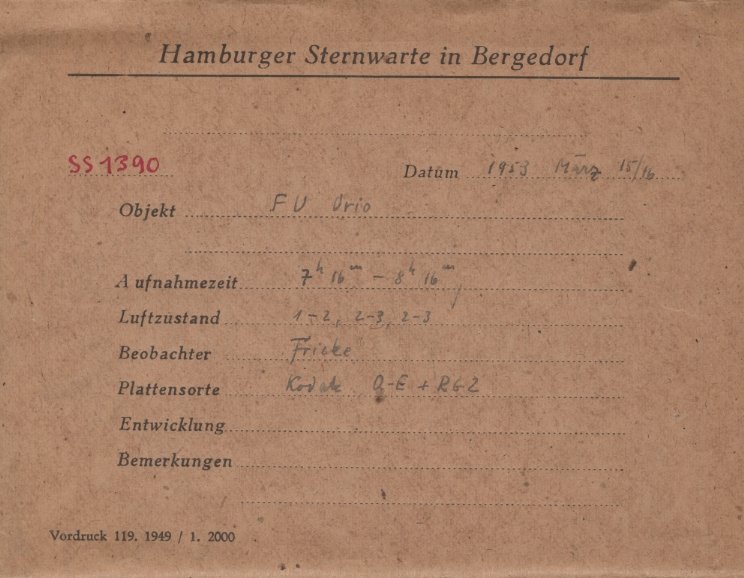 Hamburger Sternwarte in Bergedorf
SS 1390 Datum 1953 März 15/16
Objekt FU Orio
Aufnahmezeit 7ʰ 16ᵐ – 8ʰ 16ᵐ
Luftzustand 1–2, 2–3, 2–3
Beobachter Fricke
Plattensorte Kodak 0-E + RG2
Entwicklung
Bemerkungen
Vordruck 119. 1949 / 1. 2000